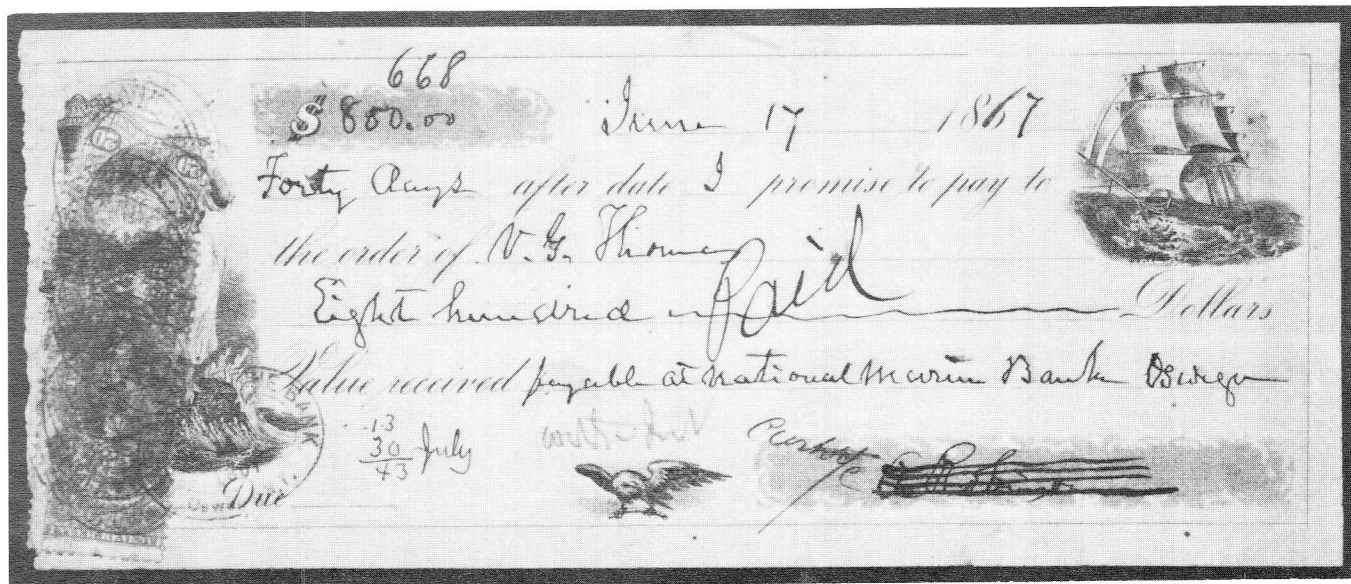 668
$ 800.00 June 17 1867
Forty days after date I promise to pay to
the order of V. G. Thomas
Eight hundred Dollars
Paid
Value received payable at National Marine Bank Oswego
13
30 July
43
Due
BANK